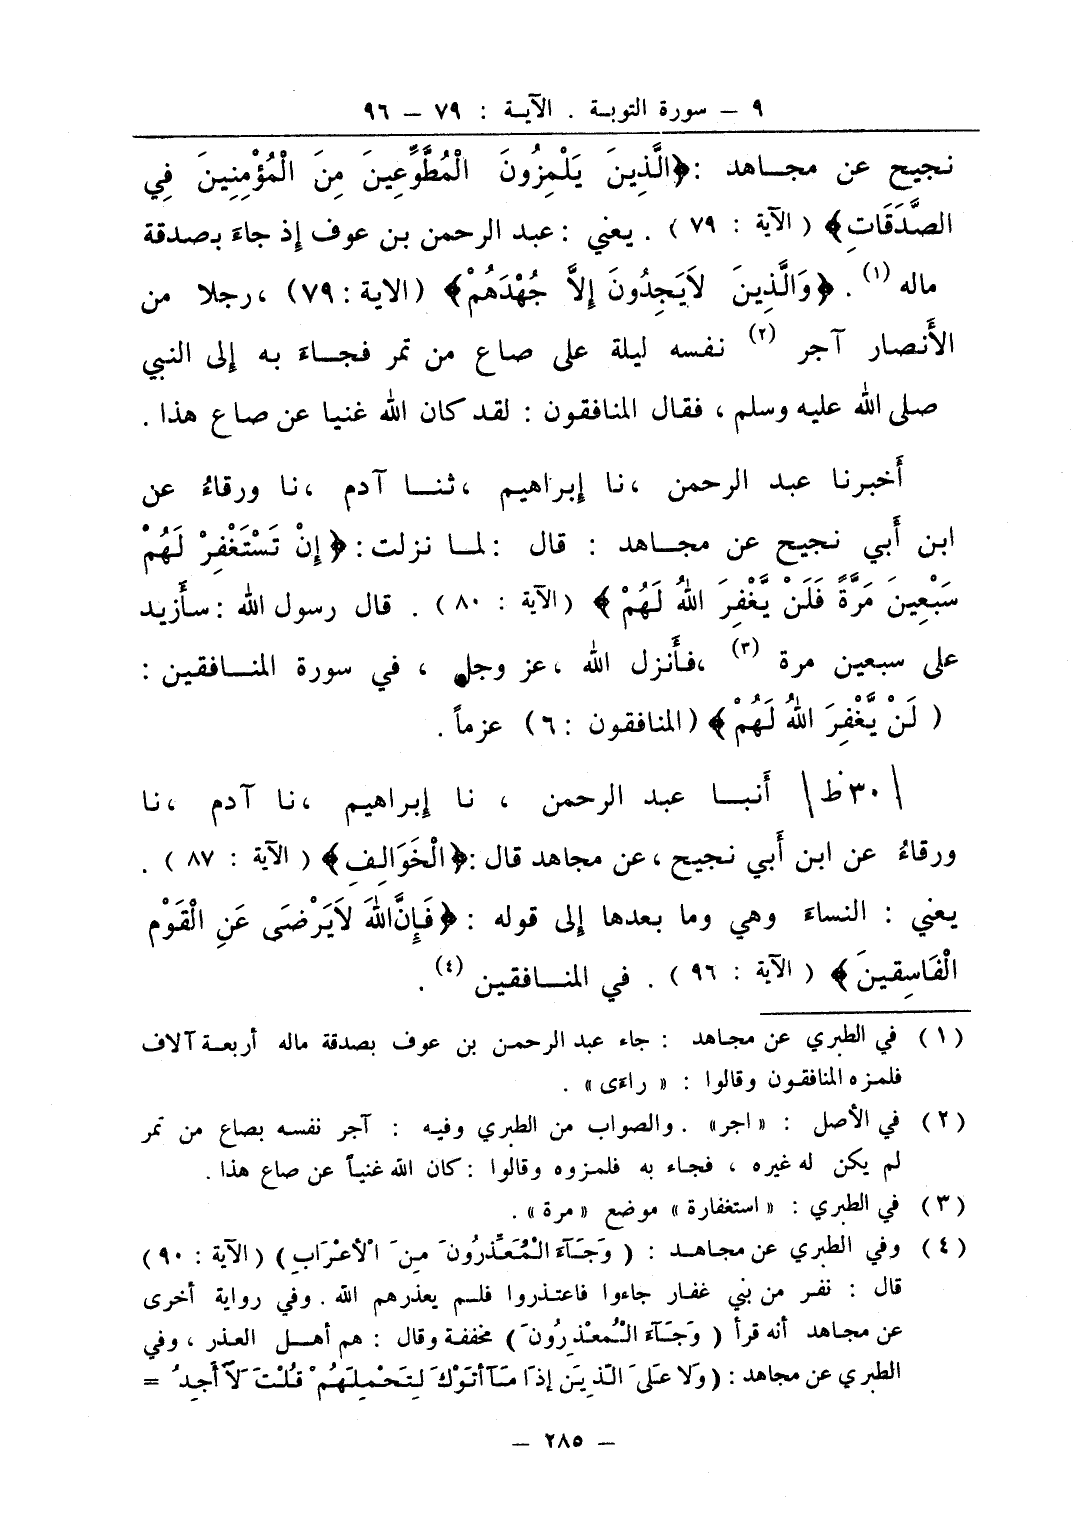 ٩ – سورة التوبة . الآية : ٧٩ – ٩٦
نجيح عن مجاهد : ﴿الَّذِينَ يَلْمِزُونَ الْمُطَّوِّعِينَ مِنَ الْمُؤْمِنِينَ فِي
الصَّدَقَاتِ﴾ ( الآية : ٧٩ ) . يعني : عبد الرحمن بن عوف إذ جاءَ بصدقة
ماله (١) . ﴿وَالَّذِينَ لَايَجِدُونَ إِلَّا جُهْدَهُمْ﴾ (الاية : ٧٩) ، رجلا من
الأَنصار آجر (٢) نفسه ليلة على صاع من تمر فجاءَ به إلى النبي
صلى الله عليه وسلم ، فقال المنافقون : لقد كان الله غنيا عن صاع هذا .
أَخبرنا عبد الرحمن ، نا إبراهيم ، ثنا آدم ، نا ورقاءُ عن
ابن أَبي نجيح عن مجاهد : قال : لما نزلت : ﴿ إِنْ تَسْتَغْفِرْ لَهُمْ
سَبْعِينَ مَرَّةً فَلَنْ يَّغْفِرَ اللهُ لَهُمْ ﴾ (الآية : ٨٠ ) . قال رسول الله : سأَزيد
على سبعين مرة (٣) ، فأَنزل الله ، عز وجل ، في سورة المنافقين :
( لَنْ يَّغْفِرَ اللهُ لَهُمْ ﴾ (المنافقون : ٦) عزماً .
\ ٣٠ ظ \ أَنبا عبد الرحمن ، نا إبراهيم ، نا آدم ، نا
ورقاءُ عن ابن أَبي نجيح ، عن مجاهد قال : ﴿الْخَوَالِفِ﴾ ( الآية : ٨٧ ) .
يعني : النساءَ وهي وما بعدها إلى قوله : ﴿فَإِنَّاللهَ لَايَرْضَى عَنِ الْقَوْمِ
الْفَاسِقِينَ﴾ ( الآية : ٩٦ ) . في المنافقين (٤) .
(١) في الطبري عن مجاهد : جاء عبد الرحمن بن عوف بصدقة ماله أربعة آلاف
فلمزه المنافقون وقالوا : « راءى » .
(٢) في الأصل : « اجر» . والصواب من الطبري وفيه : آجر نفسه بصاع من تمر
لم يكن له غيره ، فجاء به فلمزوه وقالوا : كان الله غنياً عن صاع هذا .
(٣) في الطبري : « استغفارة » موضع « مرة » .
(٤) وفي الطبري عن مجاهد : ( وَجَآءَ الْمُعَذِّرُونَ مِنَ الْأَعْرَابِ ) (الآية : ٩٠)
قال : نفر من بني غفار جاءوا فاعتذروا فلم يعذرهم الله . وفي رواية أخرى
عن مجاهد أنه قرأ ( وَجَآءَ الْمُعْذِرُونَ ) مخففة وقال : هم أهل العذر ، وفي
الطبري عن مجاهد : ( وَلَا عَلَى الَّذِينَ إِذَا مَآأَتَوْكَ لِتَحْمِلَهُمْ قُلْتَ لَآ أَجِدُ =
– ٢٨٥ –